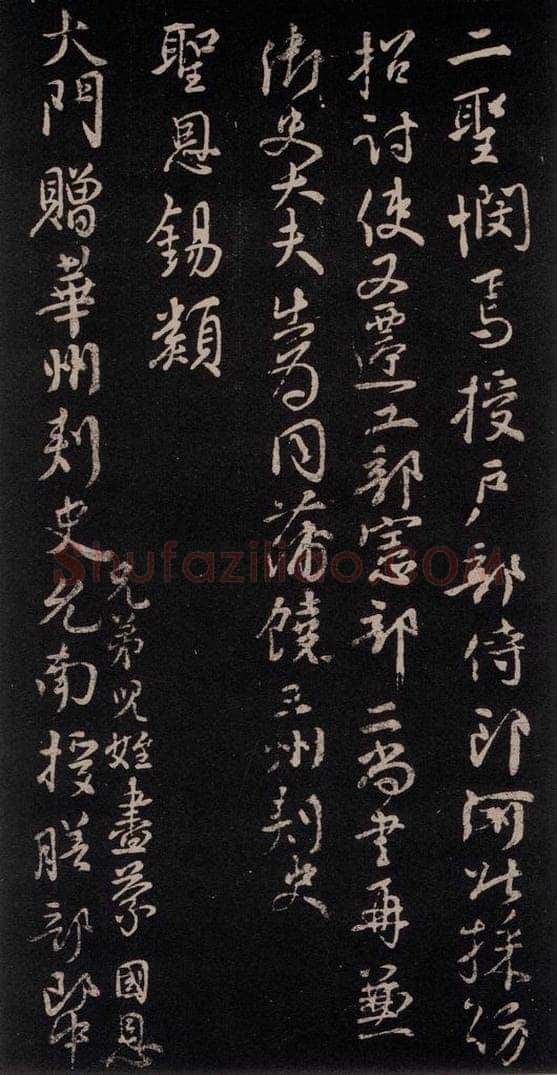 二聖憫焉授戶部侍郎河北採訪
招討使又遷工部憲部二尚書再兼
御史大夫出為同蒲饒三州刺史
聖恩錫類
兄弟兒姪盡蒙國恩
大門贈華州刺史允南授膳部郎中
Shufaziliao.COM